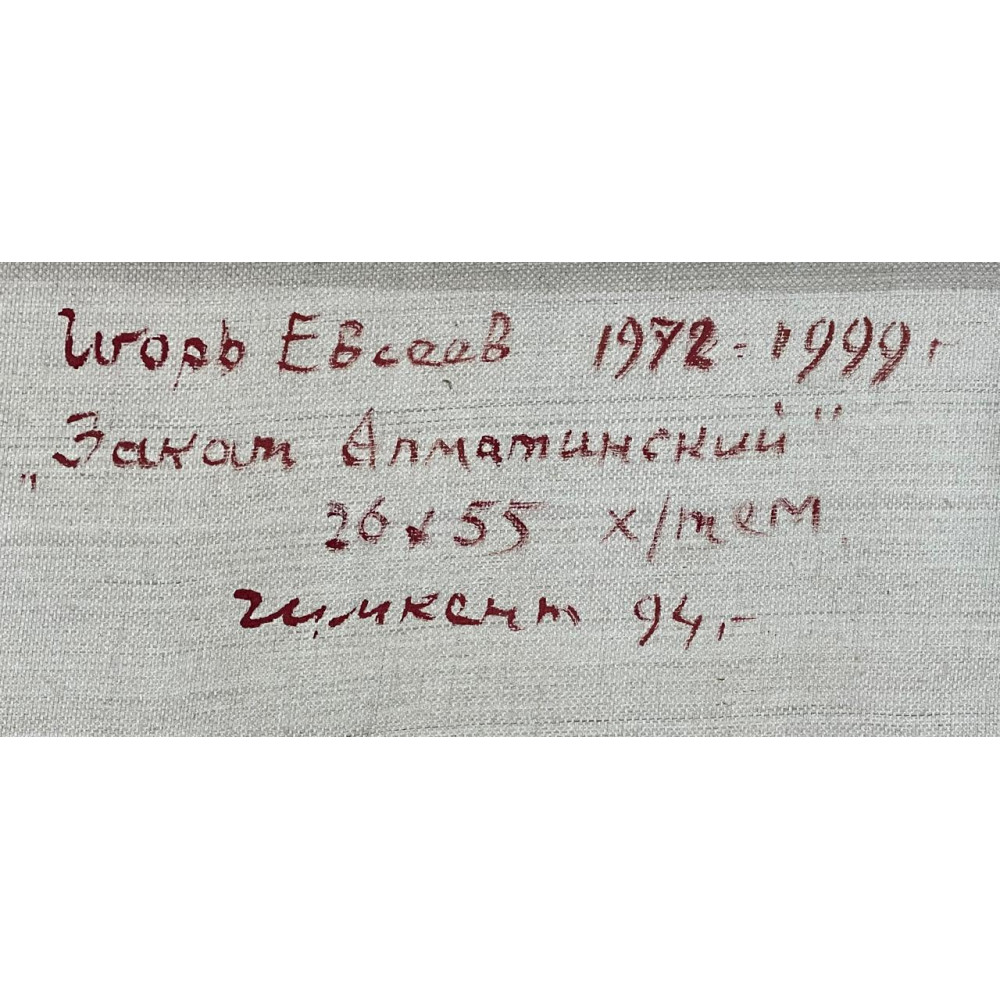 Игорь Евсеев 1972-1999,-
„Закат Алматинский"
26x55 х/тем
Чимкент 94,-